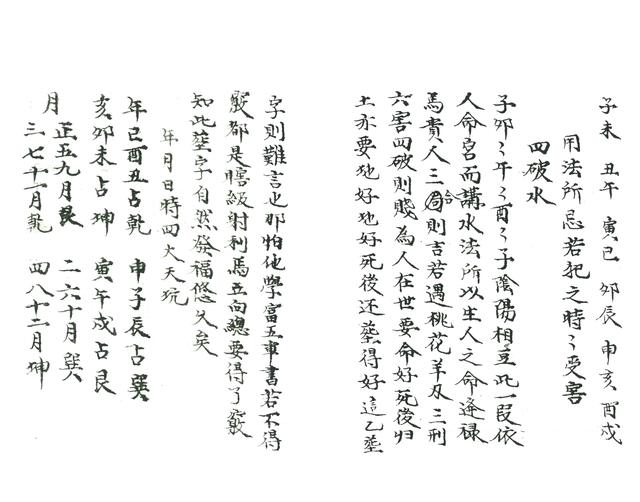 子未 丑午 寅巳 卯辰 申亥 酉戍
用法所忌若犯之時〻受害
四破水
子卯〻午〻酉〻子陰陽相豆此一段依
人命宮而講水法所以生人之命逢禄
馬貴人三合局則吉若遇桃花羊刃三刑
六害四破則賤為人在世要命好死後归
土亦要地好地好死後还塟得好這乙塟
字則難言也那怕他學富五車書若不得
竅都是瞎級射利馬五向總要得了竅
知此塟字自然發福悠久矣
年月日時四大天坑
年巳酉丑占乾 申子辰占巽
亥卯未占坤 寅午戍占艮
月 正五九月艮 二六十月巽
三七十一月乾 四八十二月坤